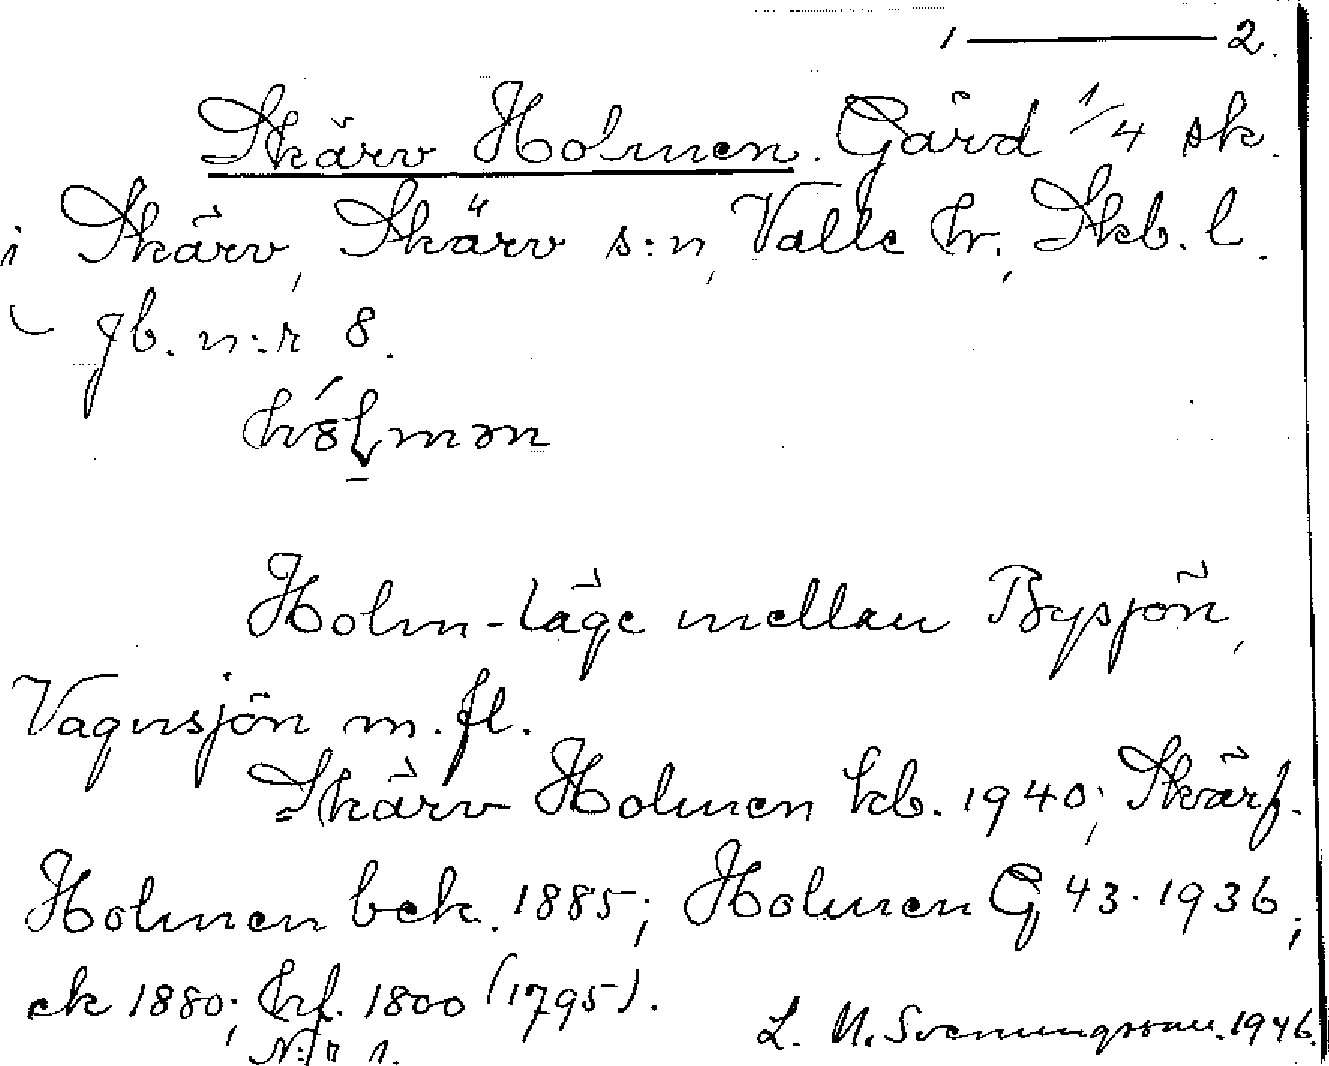 1 — 2.
Skärv Holmen. Gård 1/4 sk.
i Skärv, Skärv s:n, Valle hr, Skb. l.
gb. n:r 8.
Holm-läge mellan Bysjön,
Vagnsjön m. fl.
Skärv Holmen kb. 1940; Skärf.
Holmen bek. 1885; Holmen G 43. 1936;
ek 1880; hrf. 1800 (1795).
N:o 1.
L. M. Svenungsson. 1946.